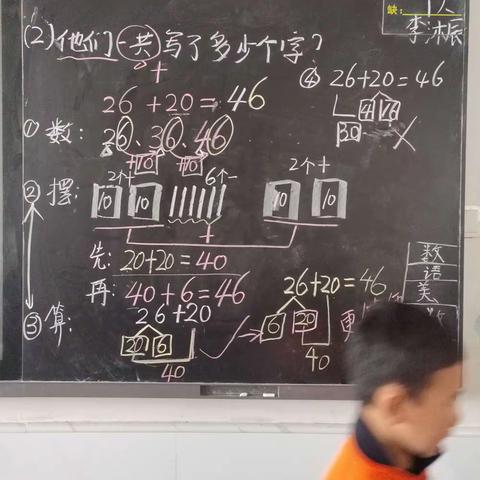 缺:
李沐辰
(2)他们一共写了多少个字?
+
26+20=46
④ 26+20=46
4 16
30 ×
①数: 26、36、46
+10 +10
②摆: 2个十 6个一 2个十
10 10 10 10
+
先: 20+20=40
再: 40+6=46
26+20=46
6 20
40
③算: 26+20
20 6
40
数
语
美